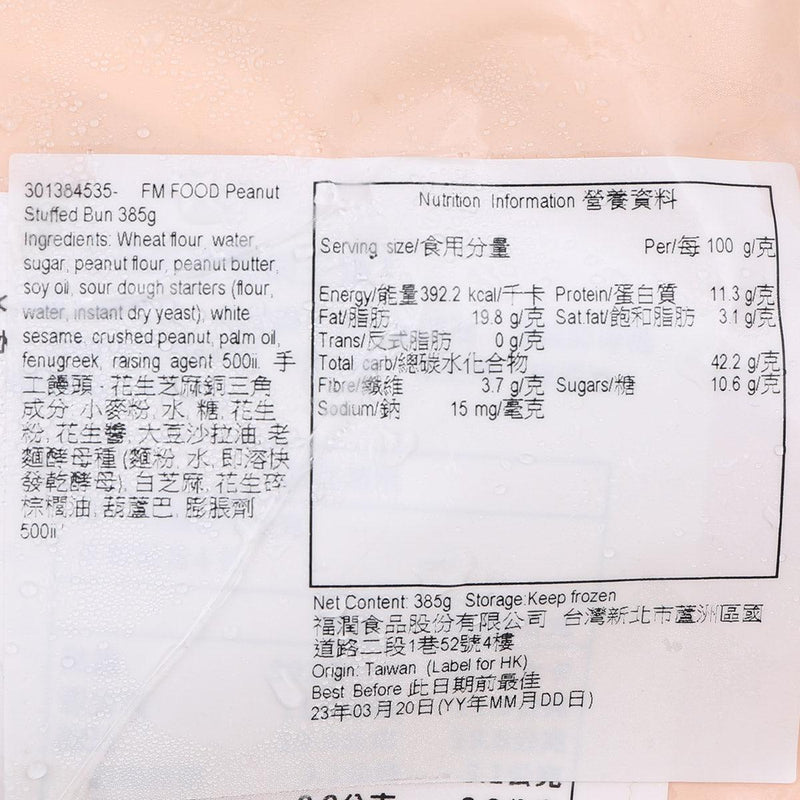 301384535- FM FOOD Peanut
Stuffed Bun 385g
Ingredients: Wheat flour, water,
sugar, peanut flour, peanut butter,
soy oil, sour dough starters (flour,
water, instant dry yeast), white
sesame, crushed peanut, palm oil,
fenugreek, raising agent 500ii. 手
工饅頭 - 花生芝麻銅三角
成分: 小麥粉, 水, 糖, 花生
粉, 花生醬, 大豆沙拉油, 老
麵酵母種 (麵粉, 水, 即溶快
發乾酵母), 白芝麻, 花生碎,
棕櫚油, 葫蘆巴, 膨脹劑
500ii
Nutrition Information 營養資料
Serving size/食用分量 Per/每 100 g/克
Energy/能量 392.2 kcal/千卡 Protein/蛋白質 11.3 g/克
Fat/脂肪 19.8 g/克 Sat.fat/飽和脂肪 3.1 g/克
Trans/反式脂肪 0 g/克
Total carb/總碳水化合物 42.2 g/克
Fibre/纖維 3.7 g/克 Sugars/糖 10.6 g/克
Sodium/鈉 15 mg/毫克
Net Content: 385g Storage:Keep frozen
福潤食品股份有限公司 台灣新北市蘆洲區國
道路二段1巷52號4樓
Origin: Taiwan (Label for HK)
Best Before 此日期前最佳
23年03月20日(YY年MM月DD日)